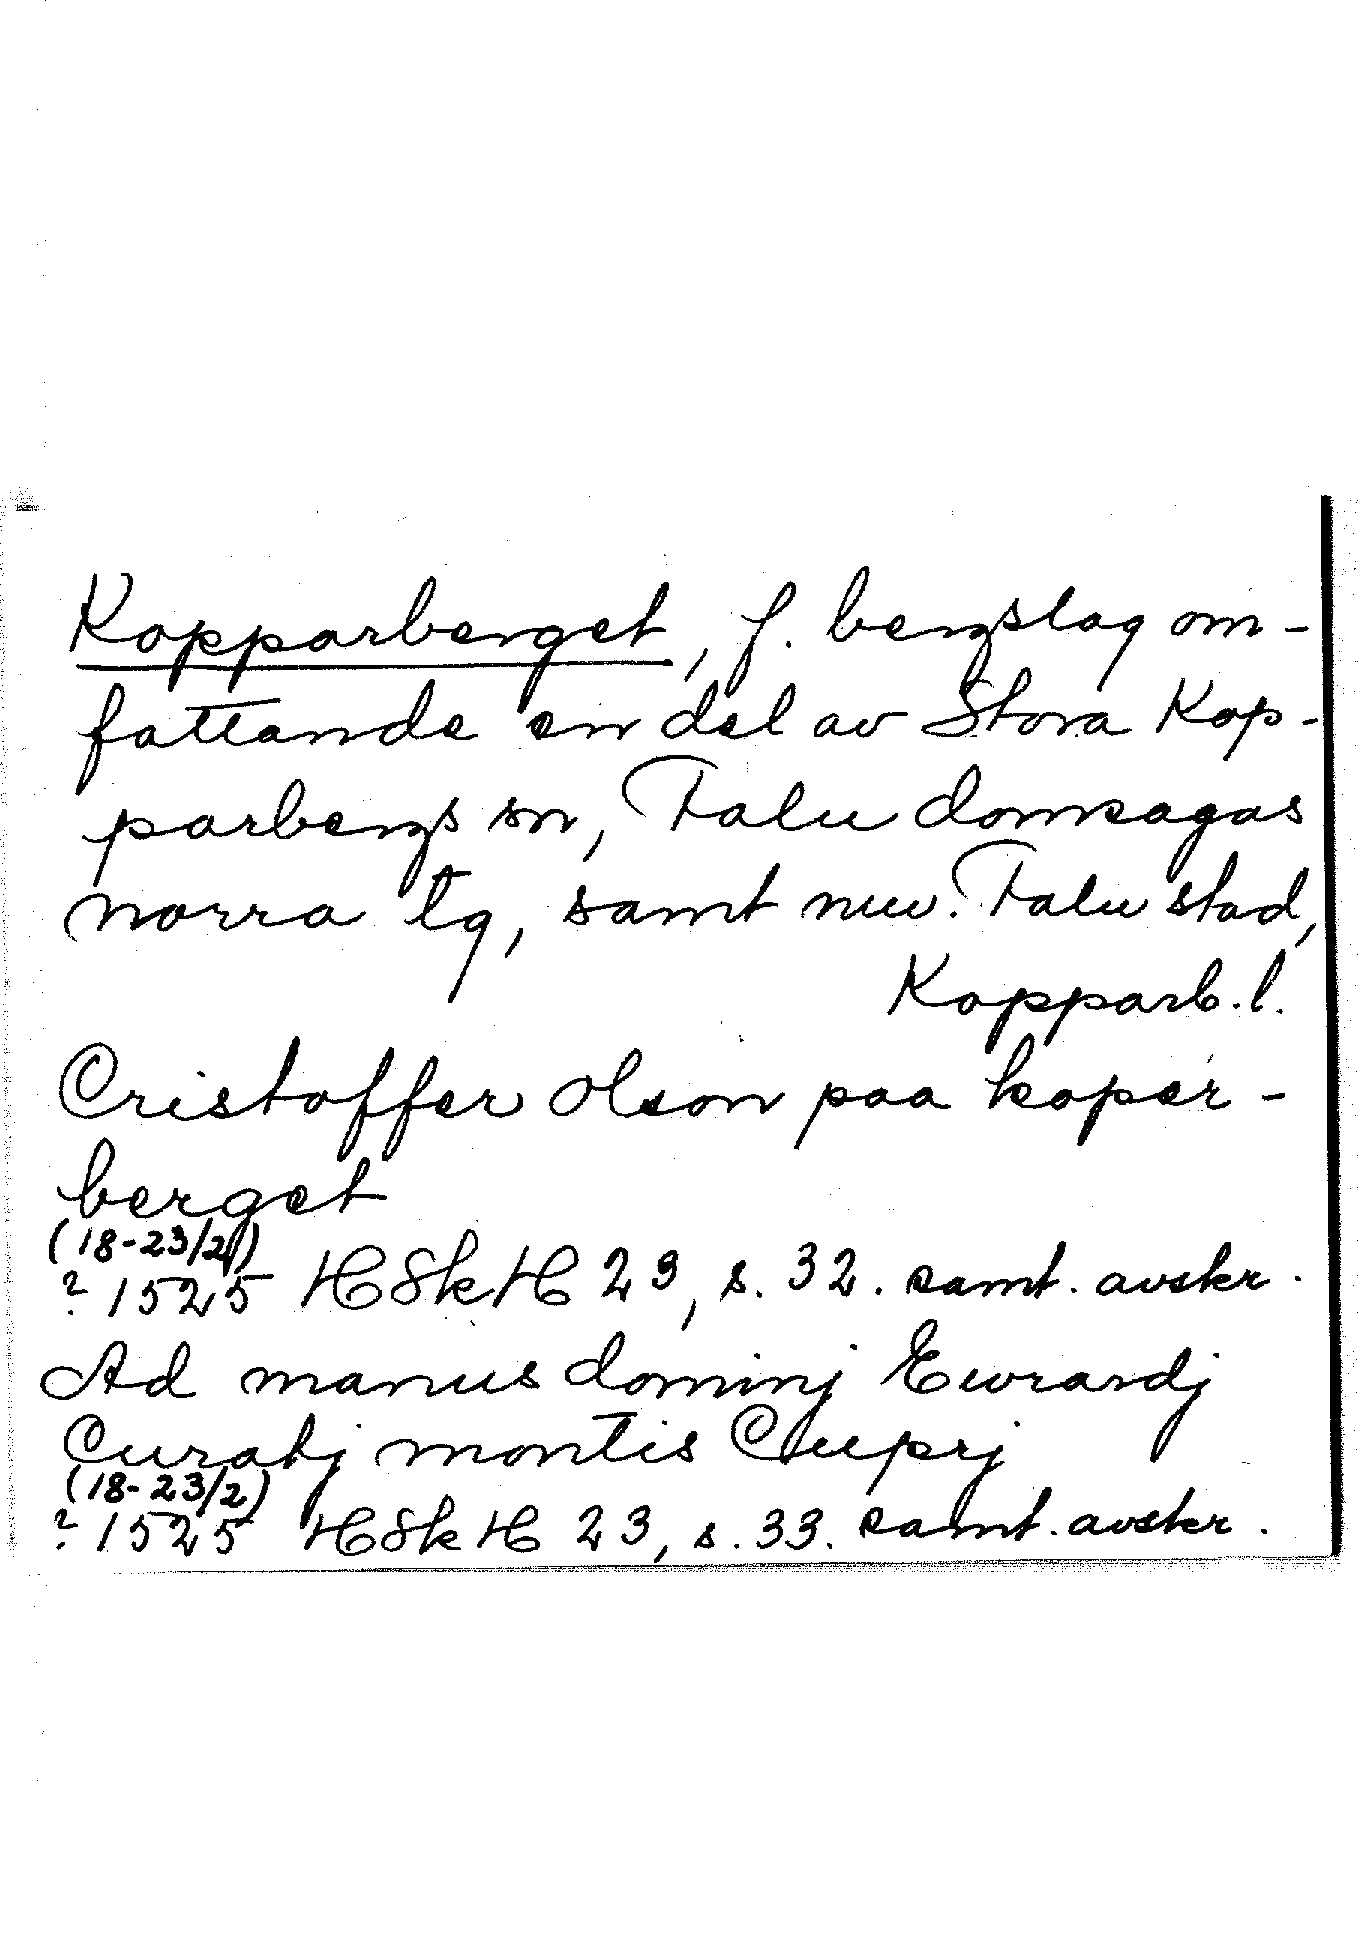 Kopparberget, f. bergslag om-
fattande en del av Stora Kop-
parbergs sn, Falu domsagas
norra tg, samt nuv. Falu stad,
Kopparb. l.
Cristoffer Olson paa koper-
berget
(18-23/2)
? 1525 HSkH 23, s. 32. samt. avskr.
Ad manus dominj Ewrardj
Curatj montis Cuprj
(18-23/2)
? 1525 HSkH 23, s. 33. samt. avskr.